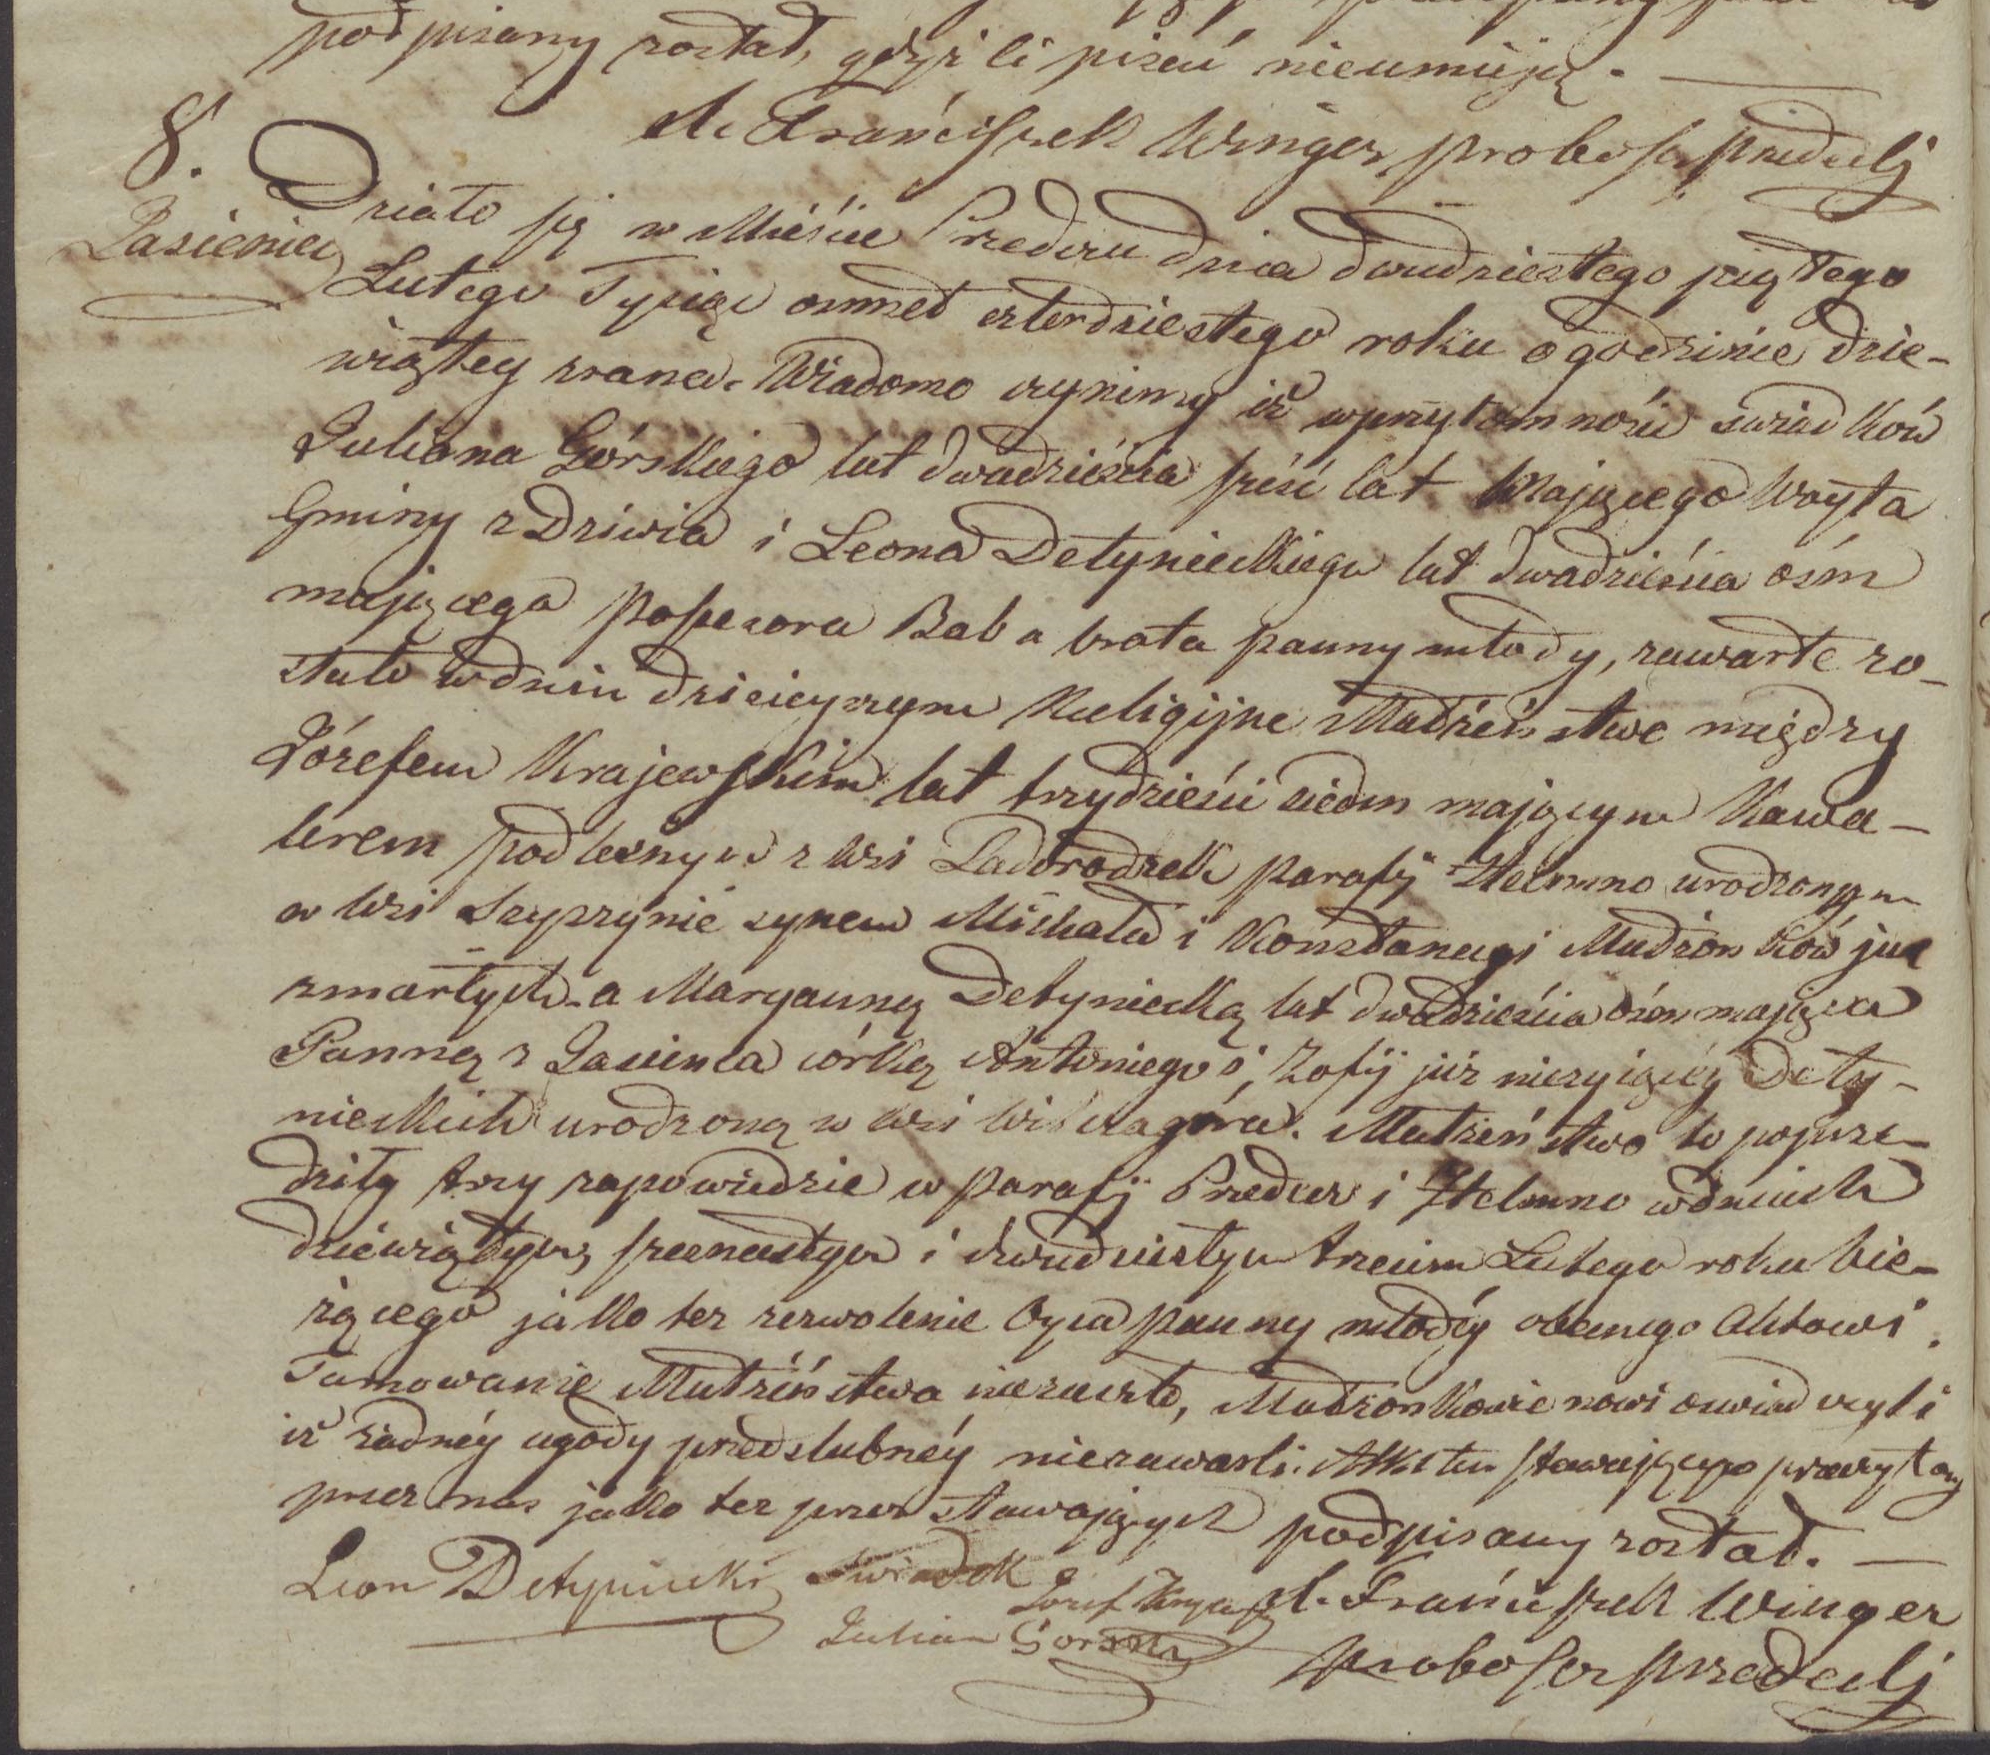 podpisany został, gdyż ci pisać nieumieją. —
X. Franciszek Winger, proboszcz przedecky
8.
Jasieniec
Działo się w Mieście Przedczu dnia dwudziestego piątego
Lutego Tysiąc osmset czterdziestego roku o godzinie dzie-
wiątey zrana. Wiadomo czynimy iż w przytomności swiadków
Juliana Górskiego lat dwadzieścia sześć lat Mającego Woyta
Gminy z Dziwia i Leona Detynieckiego lat dwadzieścia ośm
mającego Possesora Bab a brata panny młody, zawarte zo-
stało w dniu dzisieyszym Religijne Małżeństwo między
Józefem Krajewskim lat trzydzieści siedm mającym Kawa-
lerem podleśnym z Wsi Ladorodzek parafij Hełmno urodzonym
w Wsi Szyszynie synem Michała i Konstancyi Małżonków już
zmarłych - a Maryanną Detyniecką lat dwadzieścia ośm mającą
Panną z Jasieńca córką Antoniego i Zofij już nieżyiącéy Dety-
nieckich urodzoną w Wsi góra. Małżeństwo to poprze-
dziły trzy zapowiedzie w parafij Przedecz i Hełmno w dniach
dziewiątym, szesnastym i dwudziestym trzecim Lutego roku bie-
żącego jakoteż zezwolenie Oyca panny młodéy obecnego Aktowi.
Tamowanie Małżeństwa niezaszło, Małżonkowie nowi oświadczyli
iż żadnéy ugody przedślubnéy niezawarli. Akt ten stawającym przeczytany
przez nas jako też przez stawających podpisany został. —
Leon Detyniecki Swiadek
Józef Krajewski X. Franciszek Winger
Julian Gorski proboszcz przedecky